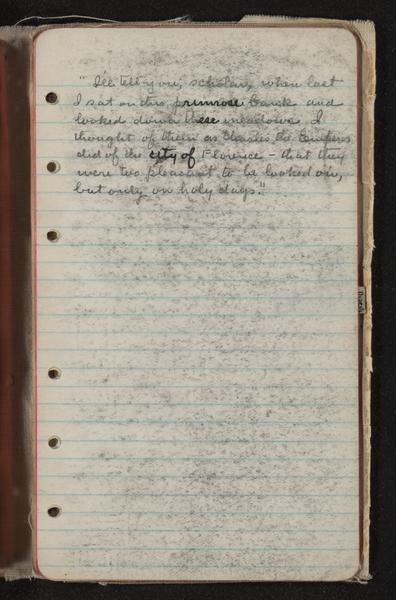 "I'll tell you, scholar, when last
I sat on this primrose bank and
looked down these meadows I
thought of them as Charles the Emperor
did of the city of Florence - that they
were too pleasant to be looked on,
but only on holy days."